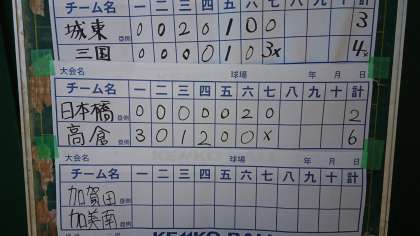 城東 塁側 0 0 2 0 1 0 0 3
三国 塁側 0 0 0 0 1 0 3x 4x
大会名 球場 年 月 日
チーム名 一 二 三 四 五 六 七 八 九 十 計
日本橋 塁側 0 0 0 0 0 2 0 2
高倉 塁側 3 0 1 2 0 0 x 6
大会名 球場 年 月 日
チーム名 一 二 三 四 五 六 七 八 九 十 計
加賀田 塁側
加美南 塁側
KENKO BALL